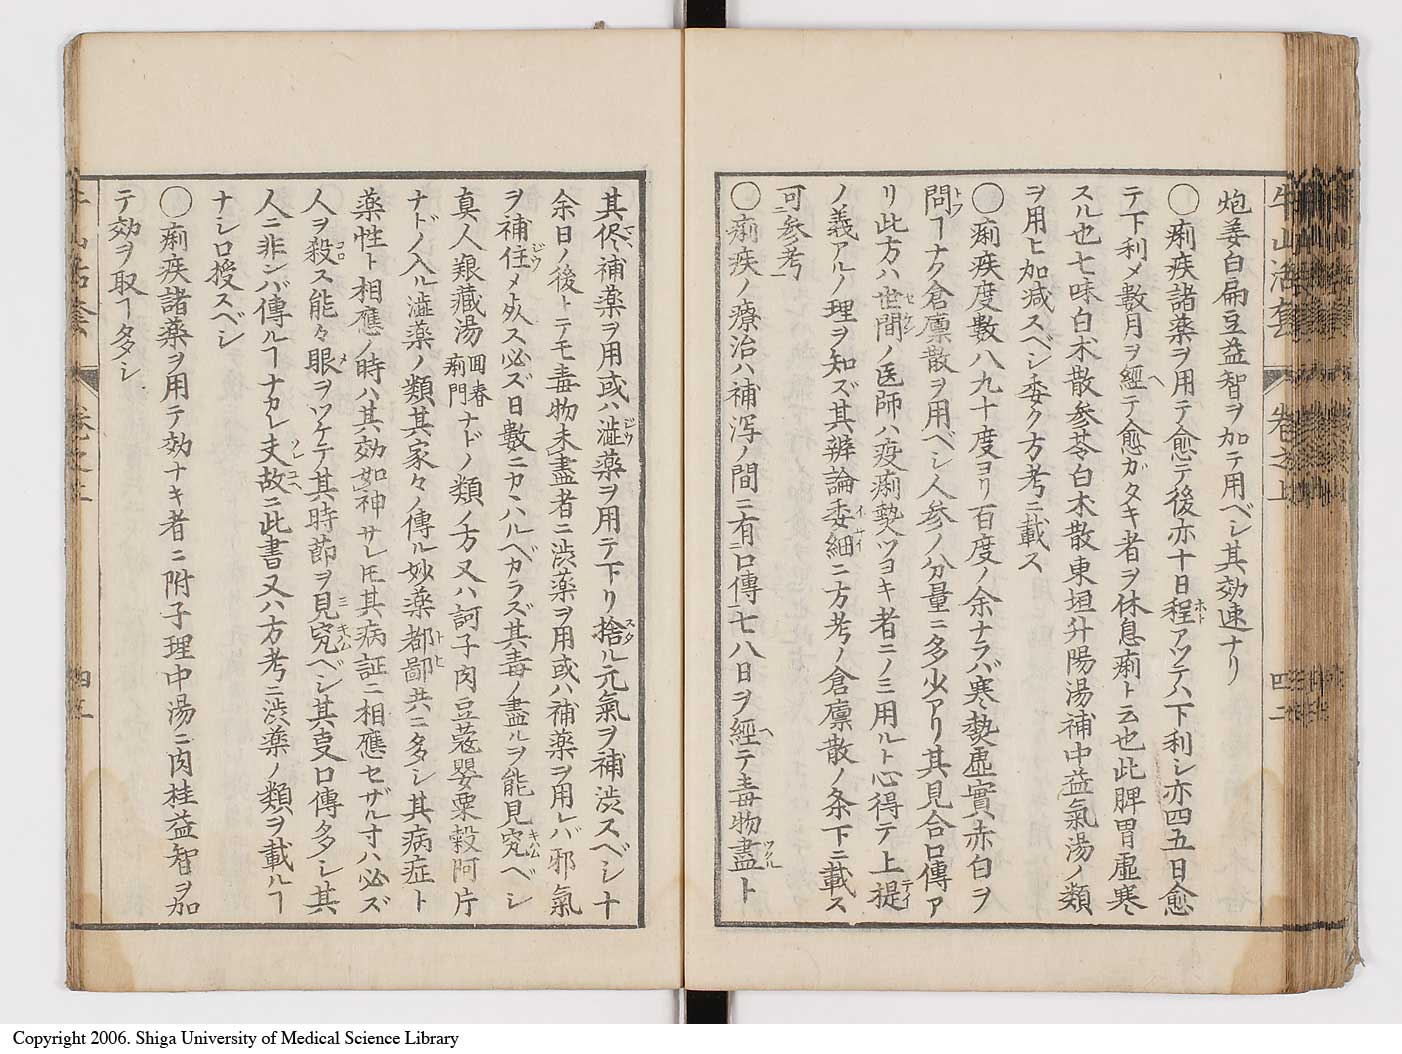 牛山活套
卷之上
四二
炮姜白扁豆益智ヲ加テ用ベシ其効速ナリ
○痢疾諸藥ヲ用テ愈テ後亦十日程アツテハ下利シ亦四五日愈
テ下利メ數月ヲ經テ愈ガタキ者ヲ休息痢ト云也此脾胃虛寒
スル也七味白朮散參苓白朮散東垣升陽湯補中益氣湯ノ類
ヲ用ヒ加減スベシ委ク方考ニ載ス
○痢疾度數八九十度ヨリ百度ノ余ナラバ寒𤍠虛實赤白ヲ
問ヿナク倉廩散ヲ用ベシ人參ノ分量ニ多少アリ其見合口傳ア
リ此方ハ世間ノ医師ハ疫痢𤍠ツヨキ者ニノミ用ルト心得テ上提
ノ義アルノ理ヲ知ズ其辨論委細ニ方考ノ倉廩散ノ条下ニ載ス
可參考
○痢疾ノ療治ハ補瀉ノ間ニ有口傳七八日ヲ經テ毒物盡ト
其侭補薬ヲ用或ハ澁藥ヲ用テ下リ捨ル元氣ヲ補渋スベシ十
余日ノ後トテモ毒物未盡者ニ渋薬ヲ用或ハ補薬ヲ用レバ邪氣
ヲ補住メ死ス必ズ日數ニカヽハルベカラズ其毒ノ盡ルヲ能見究ベシ
真人養藏湯 回春痢門 ナドノ類ノ方又ハ訶子肉豆蔲罌粟殼阿片
ナドノ入ル澁藥ノ類其家々ノ傳ル妙薬都鄙共ニ多シ其病症ト
薬性ト相應ノ時ハ其効如神サレ𪜈其病証ニ相應セザル寸ハ必ズ
人ヲ殺ス能々眼ヲツケテ其時節ヲ見究ベシ其叓口傳多シ其
人ニ非ンバ傳ルヿナカレ夫故ニ此書又ハ方考ニ渋薬ノ類ヲ載ルヿ
ナシ口授スベシ
○痢疾諸薬ヲ用テ効ナキ者ニ附子理中湯ニ肉桂益智ヲ加
テ効ヲ取ヿ多シ
Copyright 2006. Shiga University of Medical Science Library